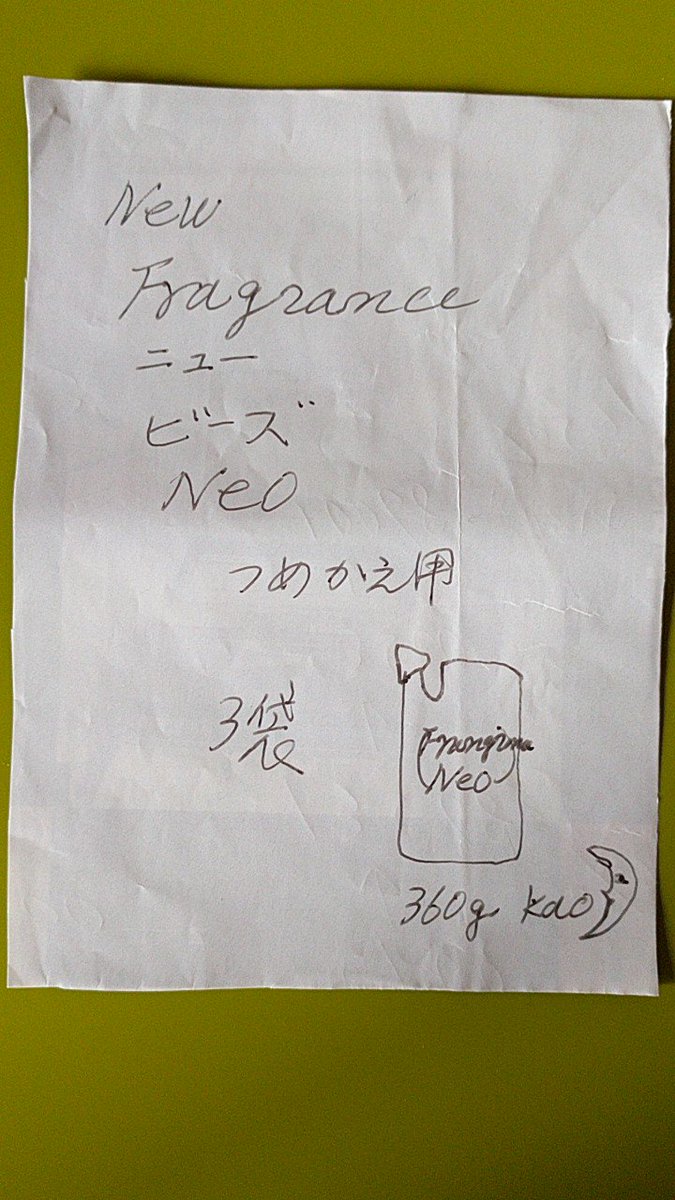 New
Fragrance
ニュー
ビーズ
Neo
つめかえ用
3袋
Neo
360g kao